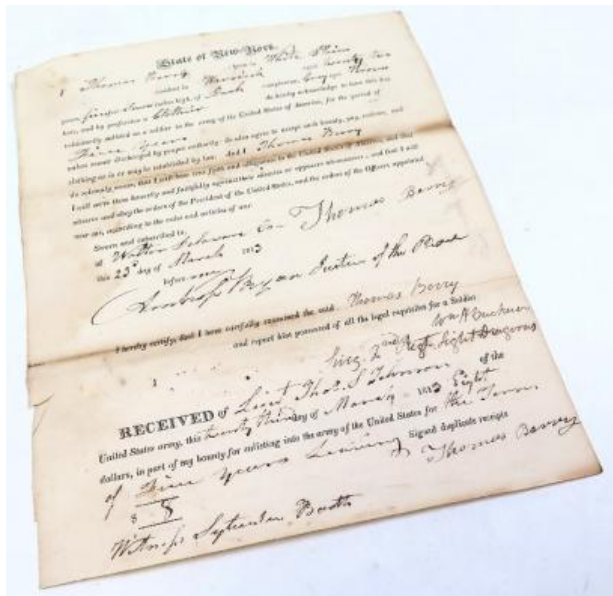 State of New York.
I Thomas Berry born in White Plains aged twenty two
years, five feet seven inches high, of Dark complexion, Grey eyes, Brown
hair, and by profession a Clothier do hereby acknowledge to have this day
voluntarily enlisted as a soldier in the army of the United States of America, for the period of
Five Years
unless sooner discharged by proper authority: do also agree to accept such bounty, pay, rations, and
clothing as is or may be established by law. And I Thomas Berry
do solemnly swear, that I will bear true faith and allegiance to the United States of America, and that
I will serve them honestly and faithfully against their enemies or opposers whomsoever; and that I will
observe and obey the orders of the President of the United States, and the orders of the Officers appointed
over me, according to the rules and articles of war.
Sworn and subscribed to,
at Walton Delaware Co Thomas Berry
this 23d day of March 1813
before me
Justice of the Peace
I hereby certify, that I have carefully examined the said Thomas Berry
and report him possessed of all the legal requisites for a Soldier
2nd Regt Light Dragoons
RECEIVED of Lieut Thos. S Johnson of the
United States army, this twenty third day of March 1813 Eight
dollars, in part of my bounty for enlisting into the army of the United States for the Term
of Five Years Signed duplicate receipts
$ 8 Thomas Berry
Witness Booth